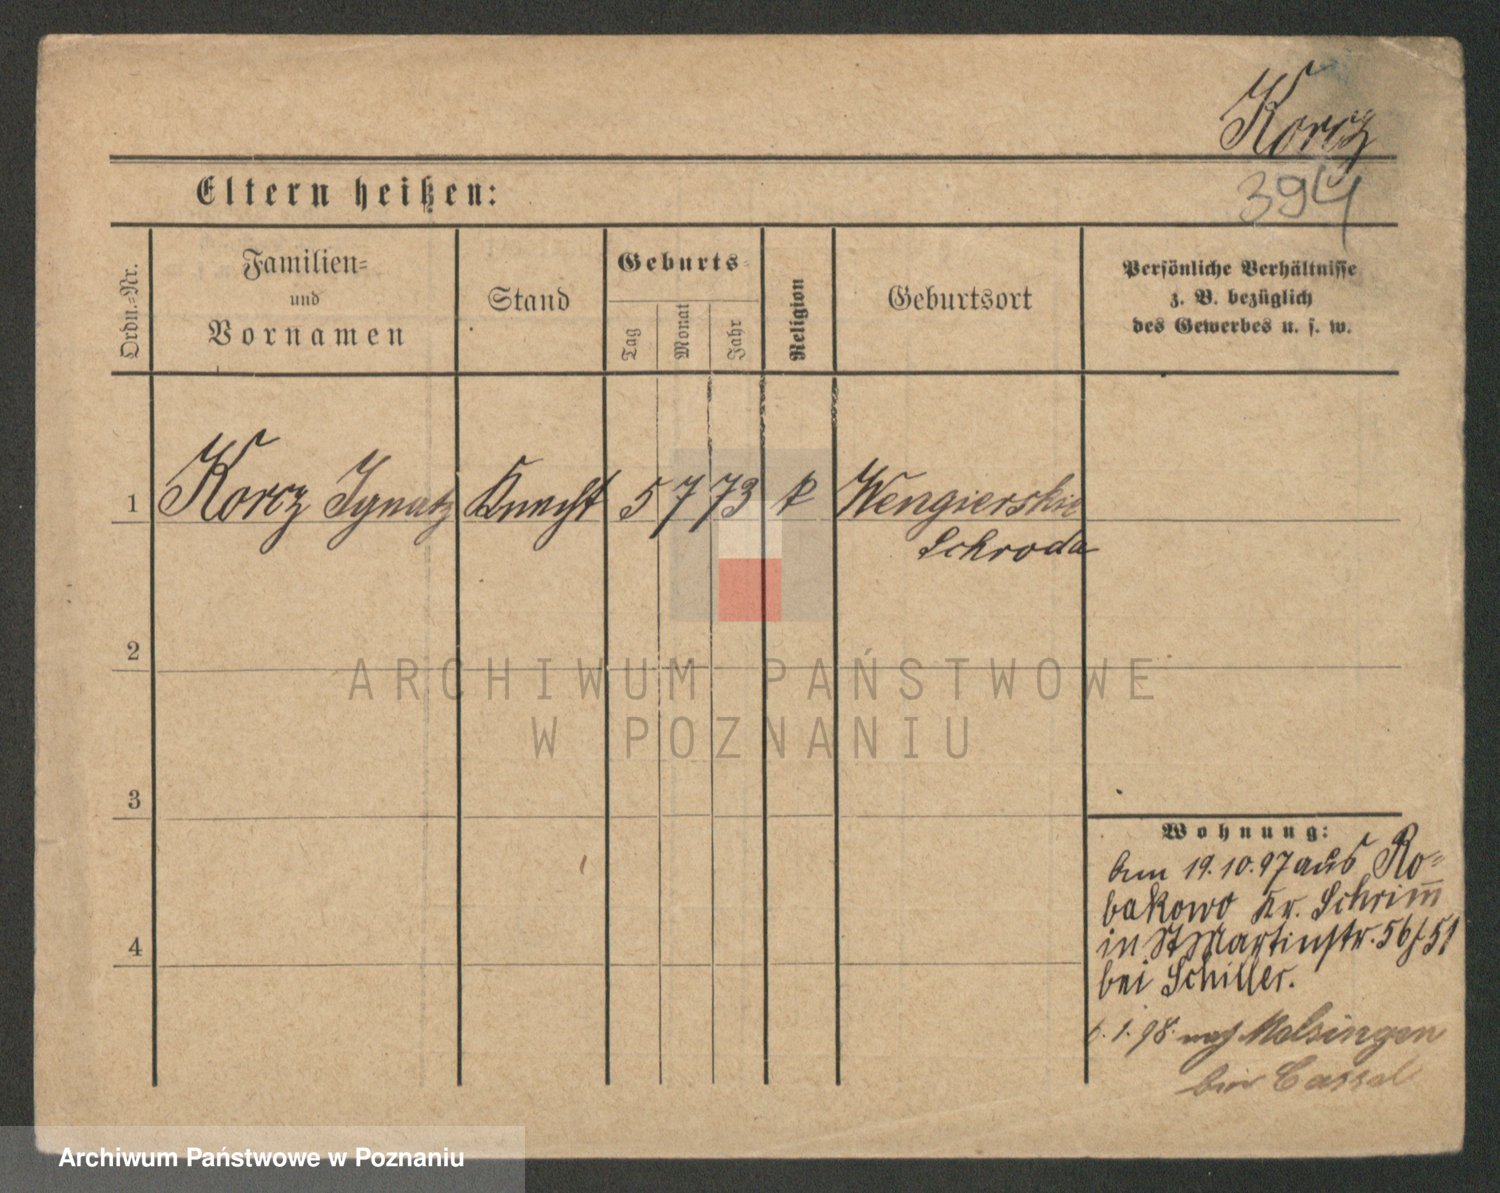 Korcz
394
Eltern heißen:
Ordn.-Nr.
Familien-
und
Vornamen
Stand
Geburts-
Tag
Monat
Jahr
Religion
Geburtsort
Persönliche Verhältnisse
z. B. bezüglich
des Gewerbes u. s. w.
1 Korcz Ignatz Knecht 5 7 73 k Wengierskie
Schroda
2
3
4
Wohnung:
19.10.97 aus Ro-
bakowo Kr. Schrimm
in St Martinstr. 56/51
bei Schiller.
1. 98. nach Melsingen
Cassel
ARCHIWUM PAŃSTWOWE
W POZNANIU
Archiwum Państwowe w Poznaniu